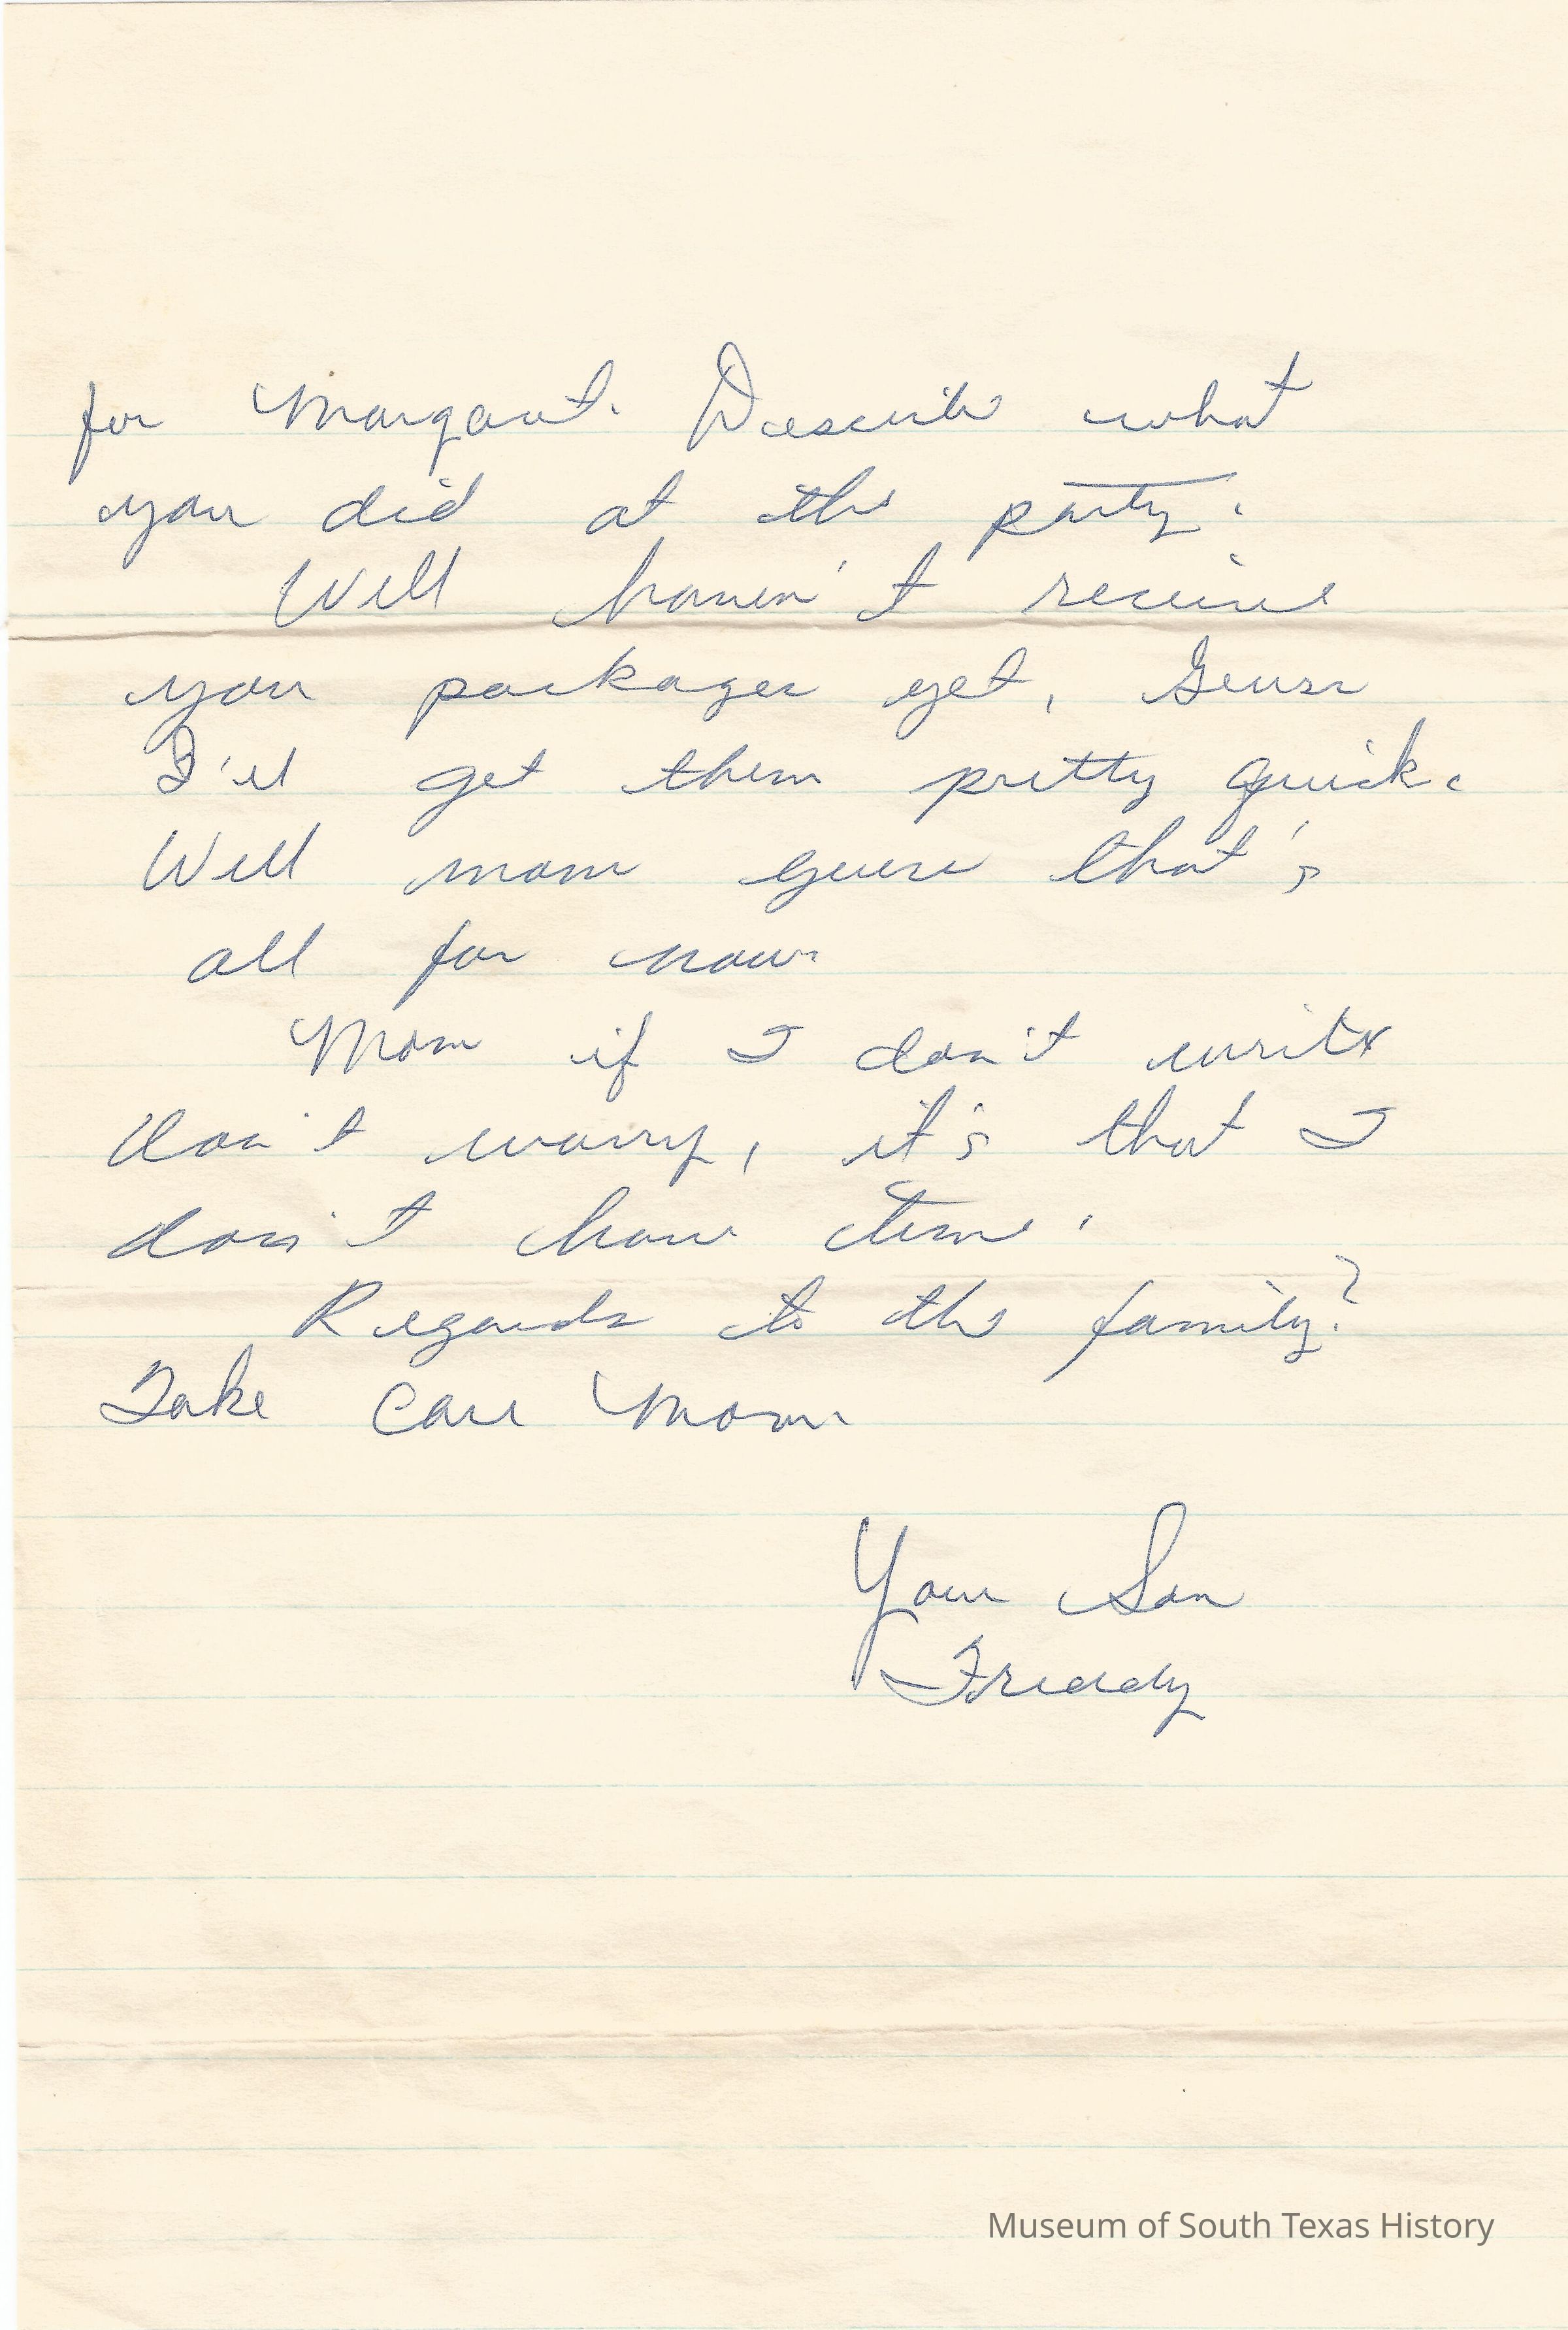 for Margaret. Describe what
you did at the party.
Well haven't receive
your packages yet, Guess
I'll get them pretty quick.
Well mom guess that's
all for now.
Mom if I don't write
don't worry, it's that I
don't have time.
Regards to the family?
Take Care Mom.
Your Son
Freddy
Museum of South Texas History